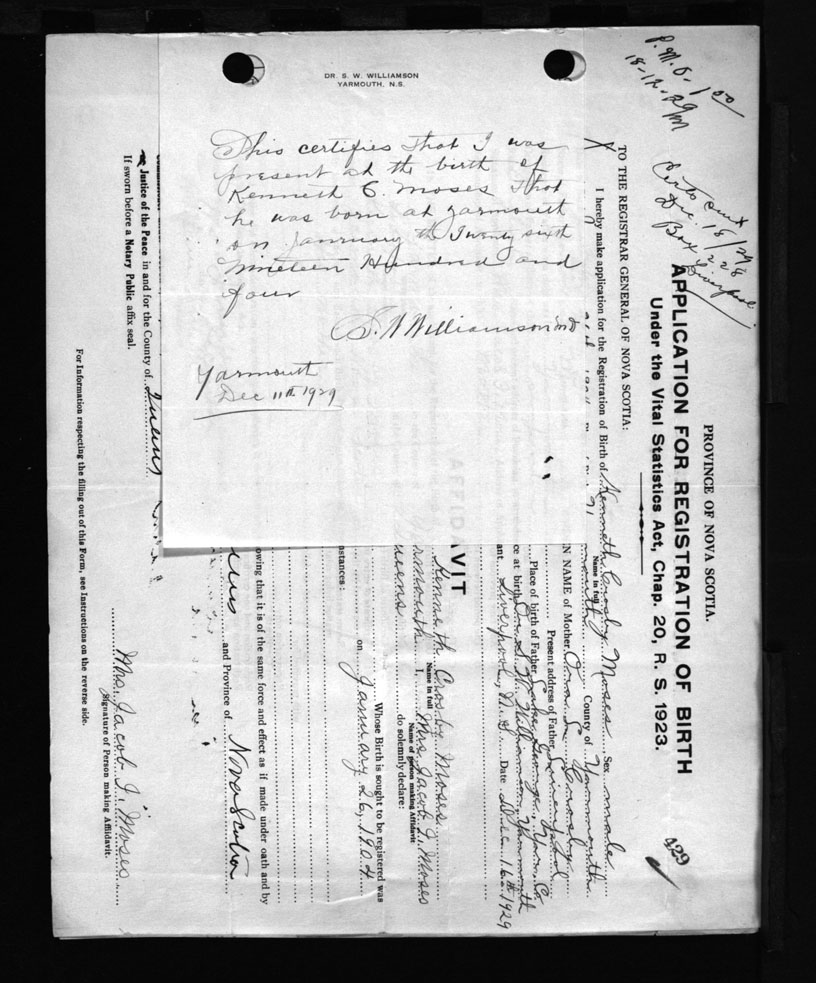 DR. S. W. WILLIAMSON
YARMOUTH, N.S.
This certifies that I was
present at the birth of
Kenneth C. Moses that
he was born at Yarmouth
on January the Twenty sixth
Nineteen Hundred and
four
S. W Williamson MD
Yarmouth
Dec 11th 1929
P.M.O. 1.00
18-12-29
Dec. 18/29
Box 228
Liverpool
429
PROVINCE OF NOVA SCOTIA.
APPLICATION FOR REGISTRATION OF BIRTH
Under the Vital Statistics Act, Chap. 20, R. S. 1923.
TO THE REGISTRAR GENERAL OF NOVA SCOTIA:
I hereby make application for the Registration of Birth of Kenneth Crosby Moses Sex male
Name in full
County of Yarmouth
N NAME of Mother Ora L. Crosby
Present address of Father Liverpool
Place of birth of Father
ce at birth Dr. S. W. Williamson, Yarmouth
ant Liverpool, N.S. Date Dec. 16th 1929
AFFIDAVIT
Kenneth Crosby Moses
Name in full
armouth I, Mrs. Jacob I. Moses
Name of person making Affidavit
Queens do solemnly declare:
Whose Birth is sought to be registered was
on January 26, 1904
nstances:
owing that it is of the same force and effect as if made under oath and by
and Province of Nova Scotia
Mrs. Jacob I. Moses
Signature of Person making Affidavit.
Justice of the Peace in and for the County of Queens
If sworn before a Notary Public affix seal.
For Information respecting the filling out of this Form, see Instructions on the reverse side.